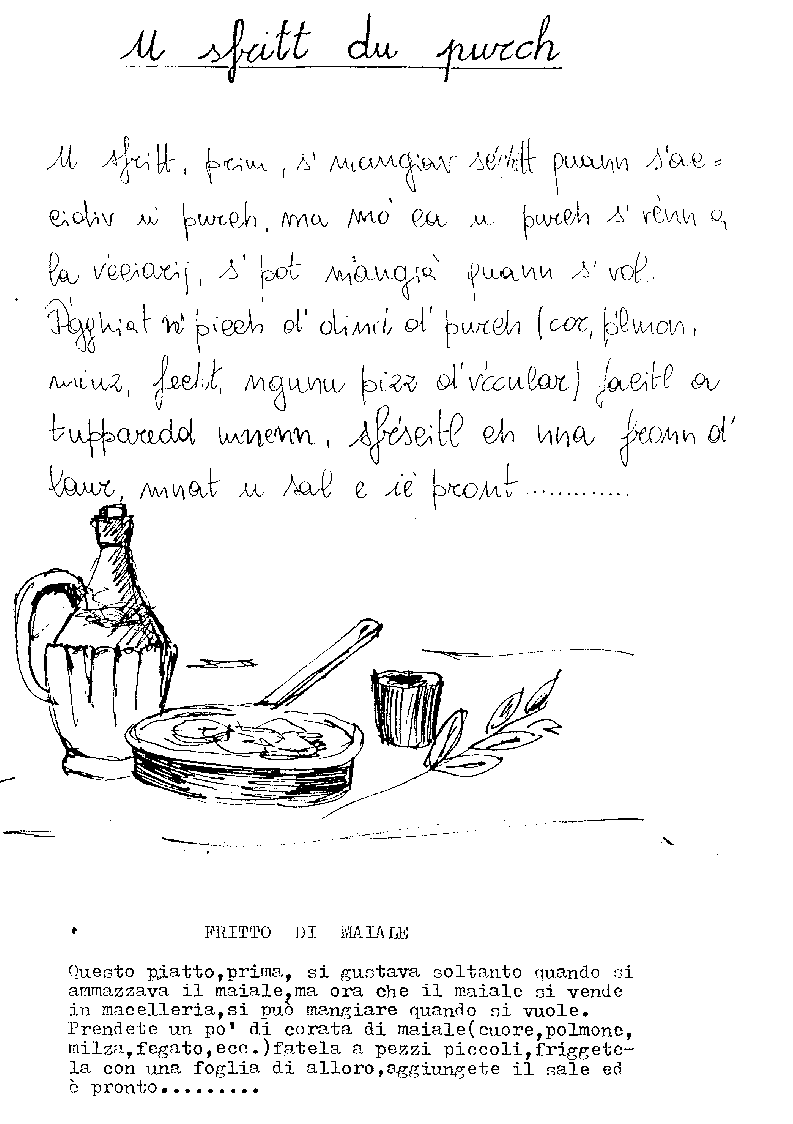 U sfritt du purch
U sfritt, prim, s' mangiav sultt quann s'ac=
cidiv u purch, ma mò ca u purch s' vènn a
la vècciarij, s' pot mangià quann s' vol.
Pigghiat n' picch d' d' purch (cor, plmon,
minz, feght, ngunu pizz d' vccular) facitl a
tupparedd mnenn, sfrscitl ch una fronn d'
laur, mnat u sal e iè pront............
FRITTO DI MAIALE
Questo piatto,prima, si gustava soltanto quando si
ammazzava il maiale,ma ora che il maiale si vende
in macelleria,si può mangiare quando si vuole.
Prendete un po' di corata di maiale(cuore,polmone,
milza,fegato,ecc.)fatela a pezzi piccoli,friggete-
la con una foglia di alloro,aggiungete il sale ed
è pronto.........